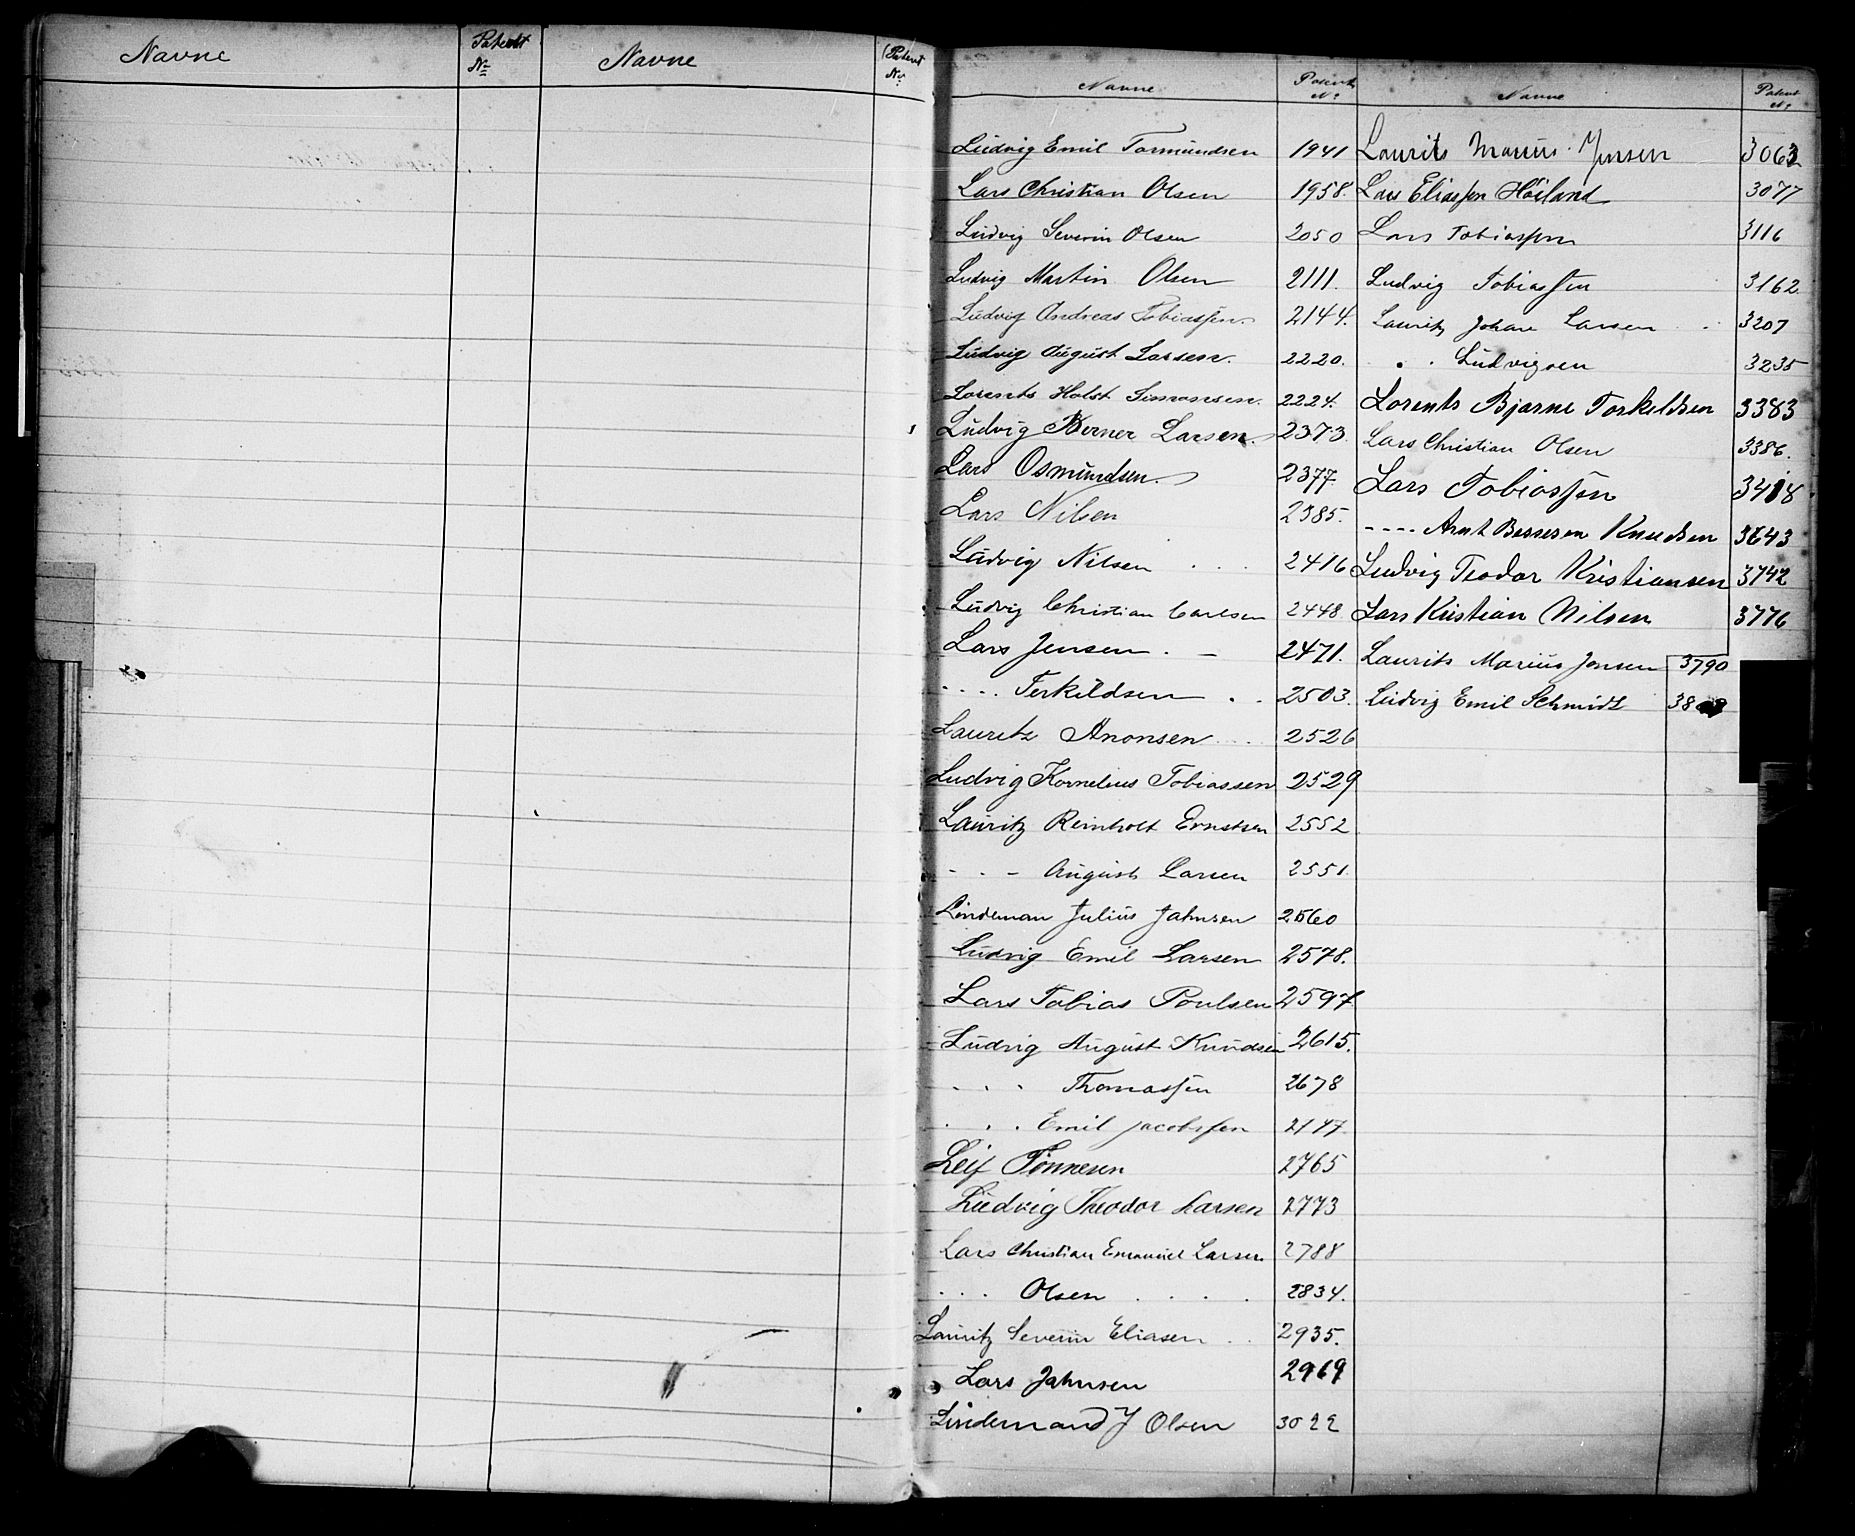 Navne Patent No Navne Patent No
Navne Patent No Navne Patent No
Ludvig Emil Tormundsen 1941
Lars Christian Olsen 1958.
Ludvig Severin Olsen 2050
Ludvig Martin Olsen 2111.
Ludvig Andreas Tobiassen 2144.
Ludvig August Larsen. 2220.
Lorents Holst Simonsen. 2224.
Ludvig Berner Larsen. 2373.
Lars Osmundsen. 2377.
Lars Nilsen 2385.
Ludvig Nilsen . . . 2416
Ludvig Christian Carlsen 2448.
Lars Jensen . - 2471.
.... Terkildsen . . 2503.
Lauritz Anonsen . . 2526
Ludvig Kornelius Tobiassen 2529
Lauritz Reinholt Ernstsen 2552
- - - August Larsen 2551.
Lindeman Julius Jahnsen 2560
Ludvig Emil Larsen 2578.
Lars Tobias Poulsen 2597
Ludvig August Knudsen 2615.
. . . Thomassen 2678
. . . Emil Jacobssen 2747
Leif Tönnesen 2765
Ludvig Theodor Larsen 2773
Lars Christian Emanuel Larsen 2788
. . . Olsen . . . . 2834.
Lauritz Severin Eliasen . . 2935.
Lars Jahnsen 2969
Lindemand J Olsen 3022
Laurits Marius Jensen 3063
Lars Eliassen Höiland 3077
Lars Tobiassen 3116
Ludvig Tobiassen 3162.
Lauritz Johan Larsen . . 3207
. . Ludvigsen 3235
Lorents Bjarne Torkeldsen 3383
Lars Christian Olsen 3386.
Lars Tobiassen 3418
---- Arnt Bessesen Knudsen 3643
Ludvig Teodor Kristiansen 3742
Lars Kristian Nilsen 3776
Laurits Marius Jensen 3790
Ludvig Emil Schmidt 38